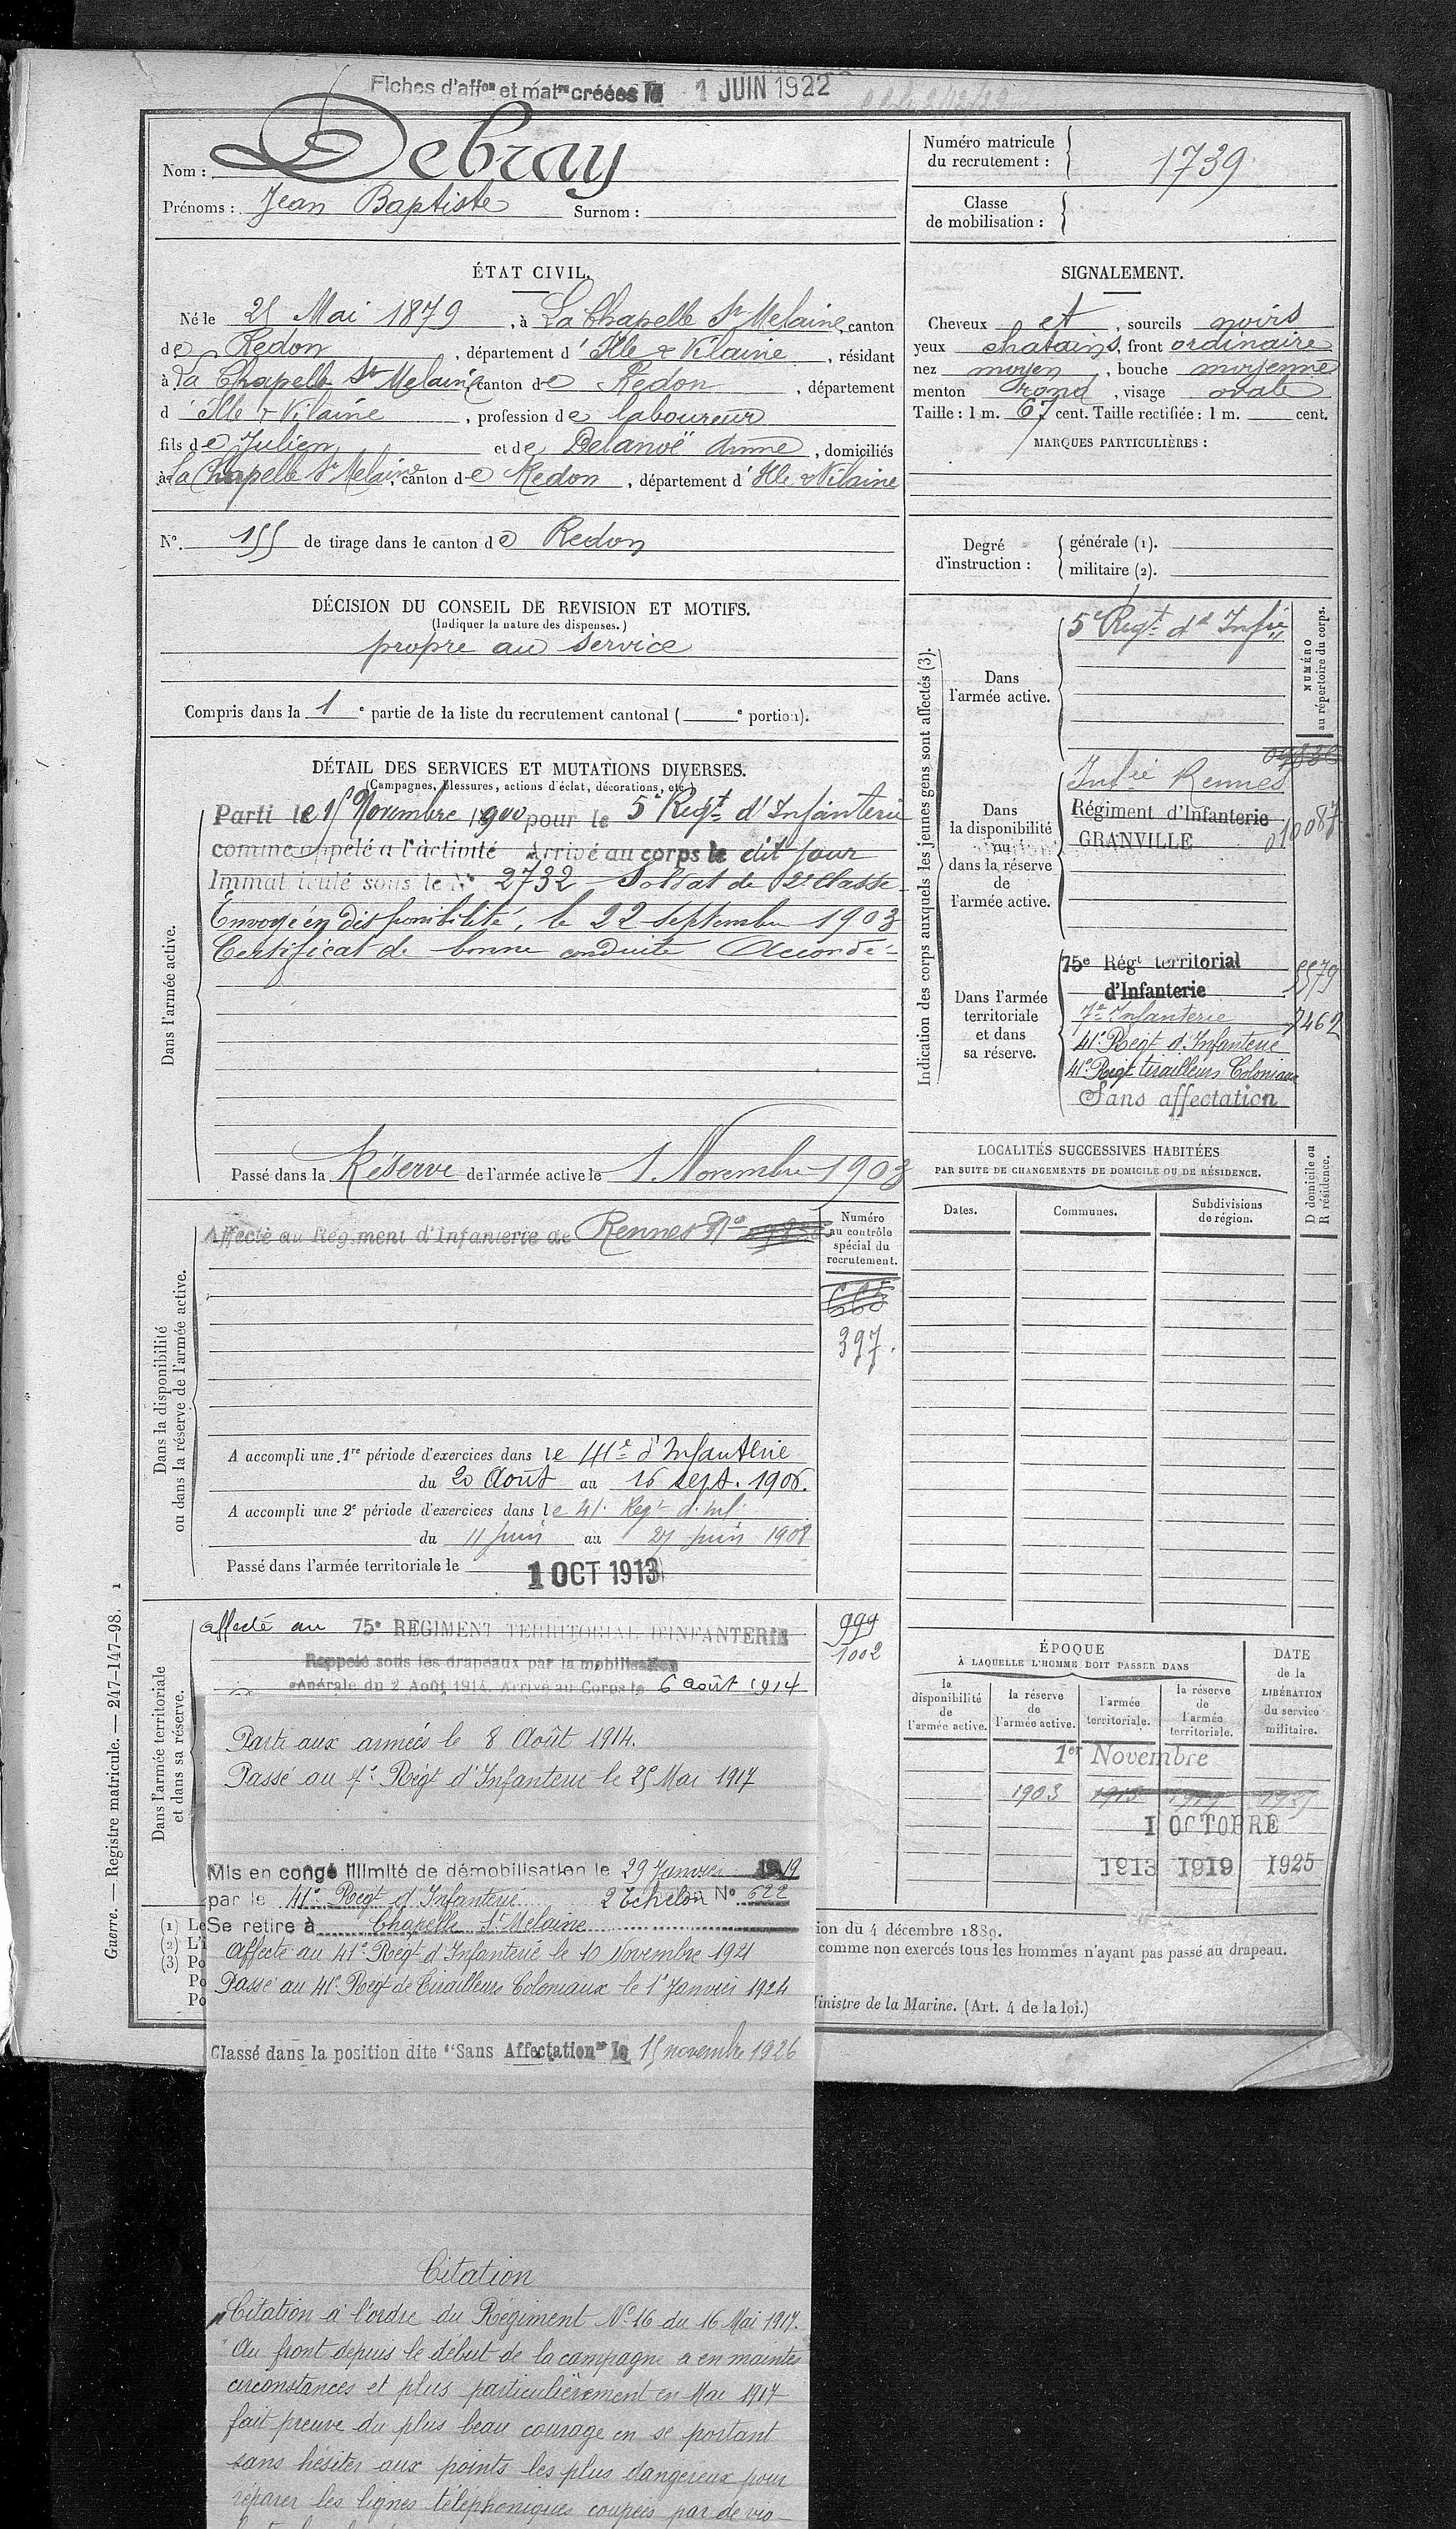 Fiches d'affon et matre créées le 1 JUIN 1922
Nom : Debray
Prénoms : Jean Baptiste Surnom :
Numéro matricule du recrutement : 1739
Classe de mobilisation :
ÉTAT CIVIL.
Né le 25 Mai 1879, à La Chapelle St Melaine, canton
de Redon, département d'Ille & Vilaine, résidant
à La Chapelle St Melaine canton de Redon, département
d'Ille & Vilaine, profession de laboureur
fils de Julien et de Delanoë Anne, domiciliés
à La Chapelle St Melaine, canton de Redon, département d'Ille & Vilaine
N° 155 de tirage dans le canton de Redon
DÉCISION DU CONSEIL DE REVISION ET MOTIFS.
(Indiquer la nature des dispenses.)
propre au service
Compris dans la 1e partie de la liste du recrutement cantonal ( e portion).
SIGNALEMENT.
Cheveux et, sourcils noirs
yeux chatains, front ordinaire
nez moyen, bouche moyenne
menton rond, visage ovale
Taille : 1 m. 67 cent. Taille rectifiée : 1 m. cent.
MARQUES PARTICULIÈRES :
Degré d'instruction : générale (1).
militaire (2).
DÉTAIL DES SERVICES ET MUTATIONS DIVERSES.
(Campagnes, blessures, actions d'éclat, décorations, etc.)
Dans l'armée active.
Parti le 15 Novembre 1900 pour le 5e Regt d'Infanterie
comme appelé à l'activité Arrivé au corps le dit jour
Immatriculé sous le N° 2732 Soldat de 2e Classe
Envoyé en disponibilité, le 22 septembre 1903
Certificat de bonne conduite Accordé
Passé dans la Réserve de l'armée active le 1 Novembre 1903
Indication des corps auxquels les jeunes gens sont affectés (3).
NUMÉRO au répertoire du corps.
Dans l'armée active.
5e Regt d'Infie
Dans la disponibilité ou dans la réserve de l'armée active.
Infie Rennes
Régiment d'Infanterie
GRANVILLE 010087
Dans l'armée territoriale et dans sa réserve.
75e Régt territorial
d'Infanterie 5579
7e Infanterie 7462
41e Regt d'Infanterie
41e Regt tirailleurs Coloniaux
Sans affectation
LOCALITÉS SUCCESSIVES HABITÉES
PAR SUITE DE CHANGEMENTS DE DOMICILE OU DE RÉSIDENCE.
Dates. Communes. Subdivisions de région. D domicile ou R résidence.
Dans la disponibilité ou dans la réserve de l'armée active.
Affecté au Régiment d'Infanterie de Rennes N°
Numéro au contrôle spécial du recrutement.
665
397.
A accompli une 1re période d'exercices dans le 41e d'Infanterie
du 20 Août au 16 sept. 1906.
A accompli une 2e période d'exercices dans le 41e Regt d'Inf.
du 11 juin au 27 juin 1908
Passé dans l'armée territoriale le 1 OCT 1913
Dans l'armée territoriale et dans sa réserve.
affecté au 75e REGIMENT TERRITORIAL D'INFANTERIE
999
1002
Rappelé sous les drapeaux par la mobilisation
générale du 2 Août 1914. Arrivé au Corps le 6 août 1914
Parti aux armées le 8 Août 1914.
Passé au 7e Régt d'Infanterie le 25 Mai 1917
Mis en congé illimité de démobilisation le 29 Janvier 1919
par le 41e Regt d'Infanterie 2 Echelon N° 622
Se retire à Chapelle St Melaine
Affecté au 41e Regt d'Infanterie le 10 Novembre 1921
Passé au 41e Regt de Tirailleurs Coloniaux le 1e Janvier 1924
Classé dans la position dite "Sans Affectation" le 15 novembre 1926
ÉPOQUE
À LAQUELLE L'HOMME DOIT PASSER DANS
la disponibilité de l'armée active. la réserve de l'armée active. l'armée territoriale. la réserve de l'armée territoriale.
DATE de la LIBÉRATION du service militaire.
1er Novembre
1903 1913 1919
1 OCTOBRE
1913 1919 1925
(1) Le
(2) L'i
(3) Po
Po
Po
ion du 4 décembre 1889.
comme non exercés tous les hommes n'ayant pas passé au drapeau.
Ministre de la Marine. (Art. 4 de la loi.)
Guerre. — Registre matricule. — 247-147-98. 1
Citation
Citation à l'ordre du Régiment N° 16 du 16 Mai 1917.
"Au front depuis le début de la campagne a en maintes
circonstances et plus particulièrement en Mai 1917
fait preuve du plus beau courage en se portant
sans hésiter aux points les plus dangereux pour
réparer les lignes téléphoniques coupées par de vio-